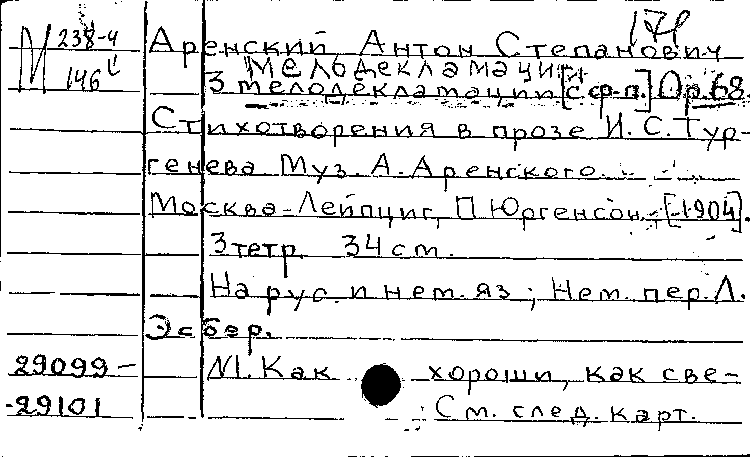 171
М 238-4
146
Аренский, Антон Степанович
Мелодекламации
3 мелодекламации [с ф-п.] Ор.68.
Стихотворения в прозе И. С. Тур-
генева Муз. А. Аренского.
Москва-Лейпциг, П. Юргенсон, [1904].
3 тетр. 34 см.
На рус. и нем. яз; Нем. пер. Л.
Эсбер.
29099- №1. Как хороши, как све-
-29101 См. след. карт.